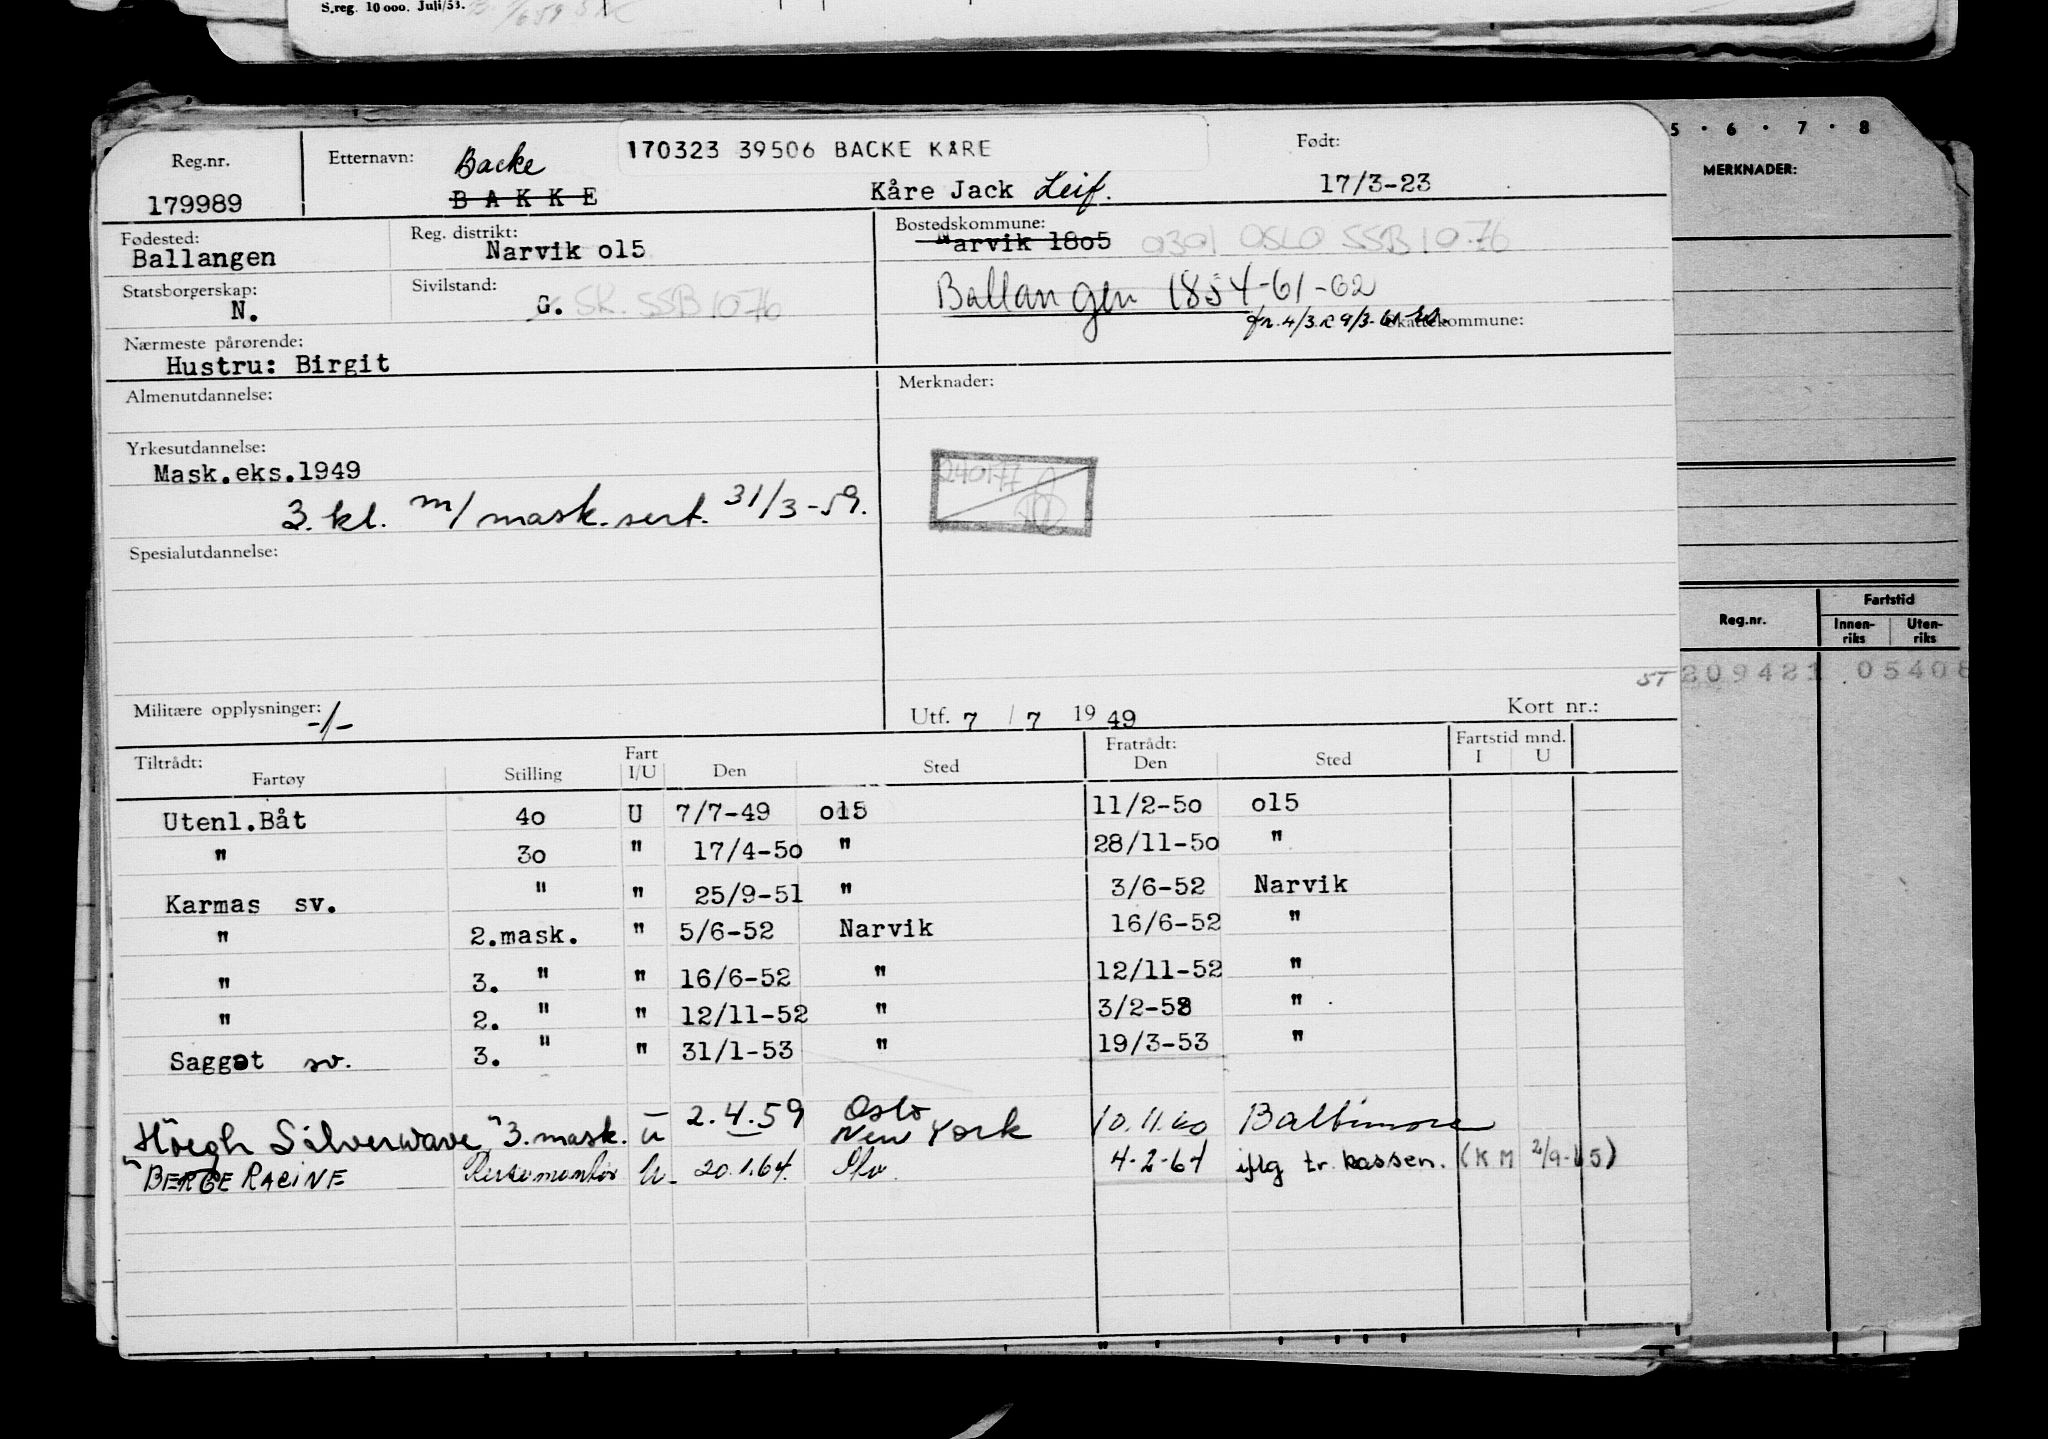 S.reg. 10 000. Juli/53.
5 • 6 • 7 • 8
MERKNADER:
Reg.nr.
179989
Etternavn:
Backe
BAKKE
170323 39506 BACKE KÅRE
Kåre Jack Leif.
Født:
17/3-23
Fødested:
Ballangen
Reg. distrikt:
Narvik o15
Bostedskommune:
Narvik 18o5 0301 OSLO SSB 10-76
Ballangen 1854-61-62
Statsborgerskap:
N.
Sivilstand:
G. SK. SSB 1076
Skattekommune:
Nærmeste pårørende:
Hustru: Birgit
Almenutdannelse:
Merknader:
240177
Yrkesutdannelse:
Mask.eks.1949
3. kl. m/ mask. sert. 31/3-59.
Spesialutdannelse:
Militære opplysninger:
-/-
Utf. 7 / 7 19 49
Kort nr.:
Reg.nr. Fartstid
Innen-riks Uten-riks
ST 209421 05408
Tiltrådt: Fratrådt: Fartstid mnd.
Fartøy Stilling Fart I/U Den Sted Den Sted I U
Utenl.Båt 4o U 7/7-49 o15 11/2-5o o15
" 3o " 17/4-5o " 28/11-5o "
Karmas sv. " " 25/9-51 " 3/6-52 Narvik
" 2.mask. " 5/6-52 Narvik 16/6-52 "
" 3. " " 16/6-52 " 12/11-52 "
" 2. " " 12/11-52 " 3/2-53 "
Saggat sv. 3. " " 31/1-53 " 19/3-53 "
"Höegh Silverwave" 3. mask. u 2.4.59 Oslo New York 10.11.60 Baltimore
"BERGE RACINE U. 20.1.64. 4-2-64 iflg tr. kassen. (KM 2/9-65)